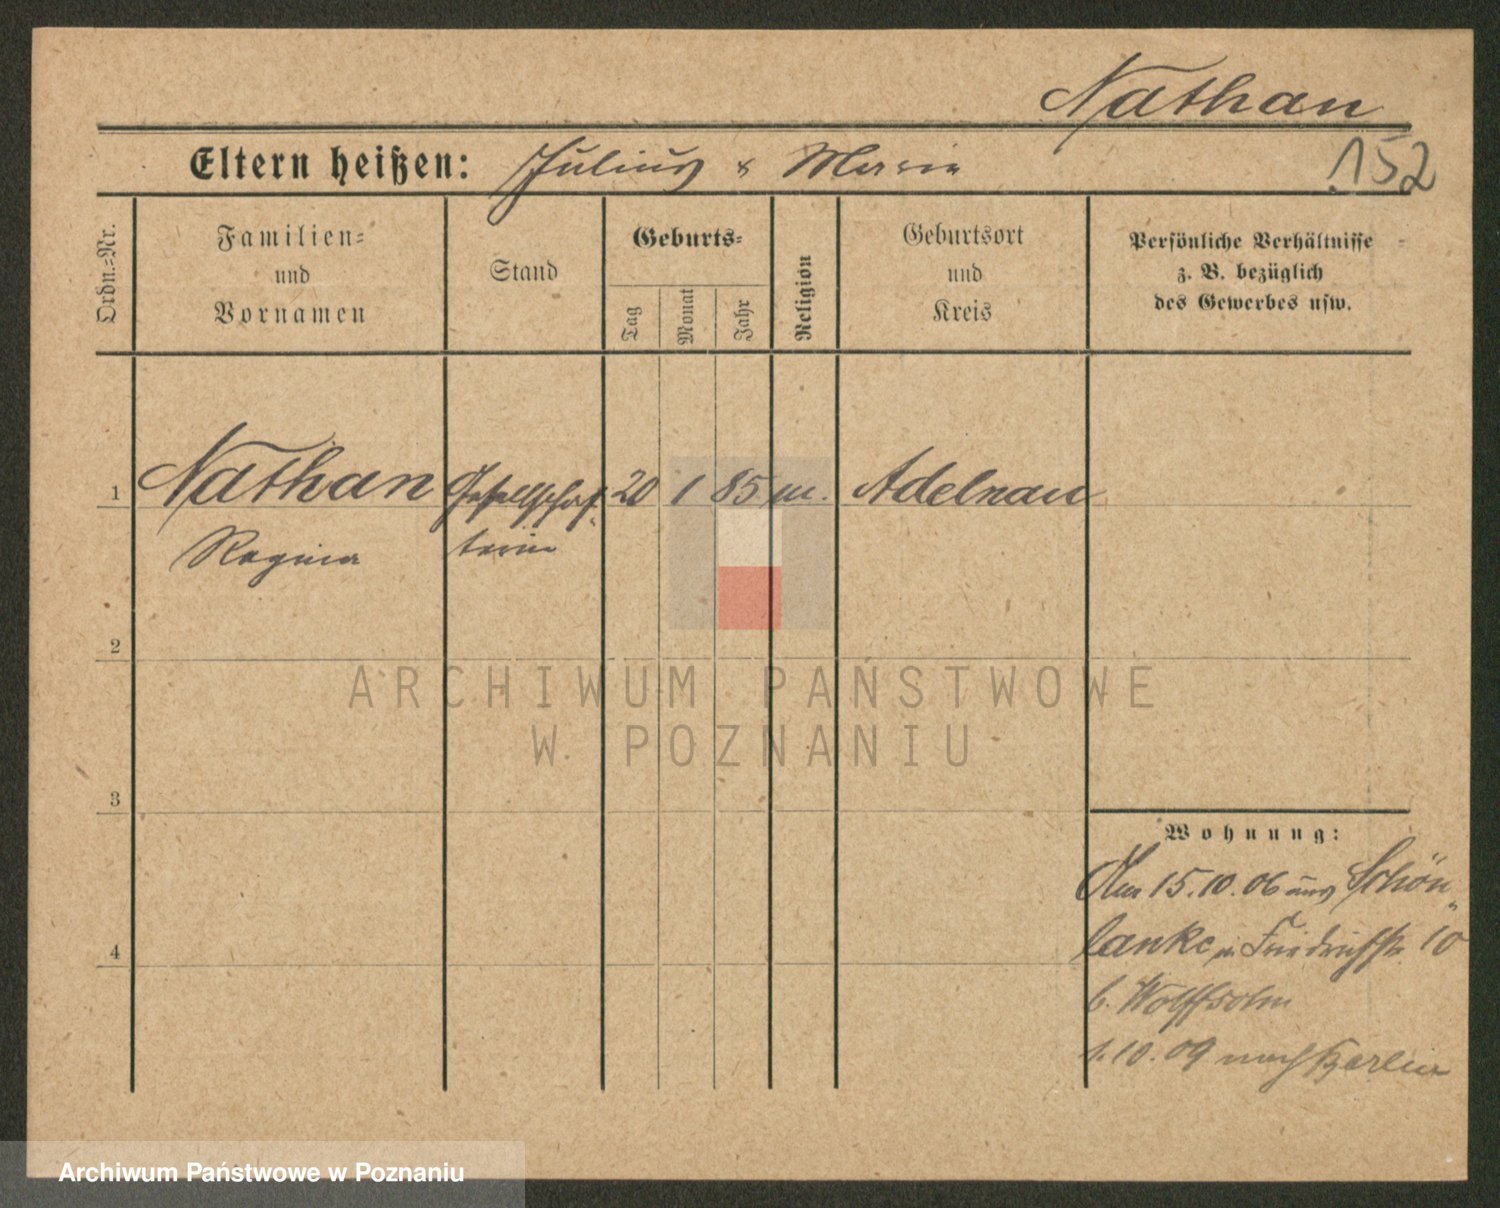 Nathan
Eltern heißen: Julius & Marie
152
Ordn.-Nr.
Familien-
und
Vornamen
Stand
Geburts-
Tag
Monat
Jahr
Religion
Geburtsort
und
Kreis
Persönliche Verhältnisse
z. B. bezüglich
des Gewerbes usw.
1 Nathan Gesellschaf- 20 1 85 m. Adelnau
Regina terin
2
ARCHIWUM PAŃSTWOWE
W POZNANIU
3
Wohnung:
Am 15.10.06 aus Schön-
4 lanke n. Friedrichstr. 10
b. Wolffsohn
1.10.09 nach Berlin
Archiwum Państwowe w Poznaniu